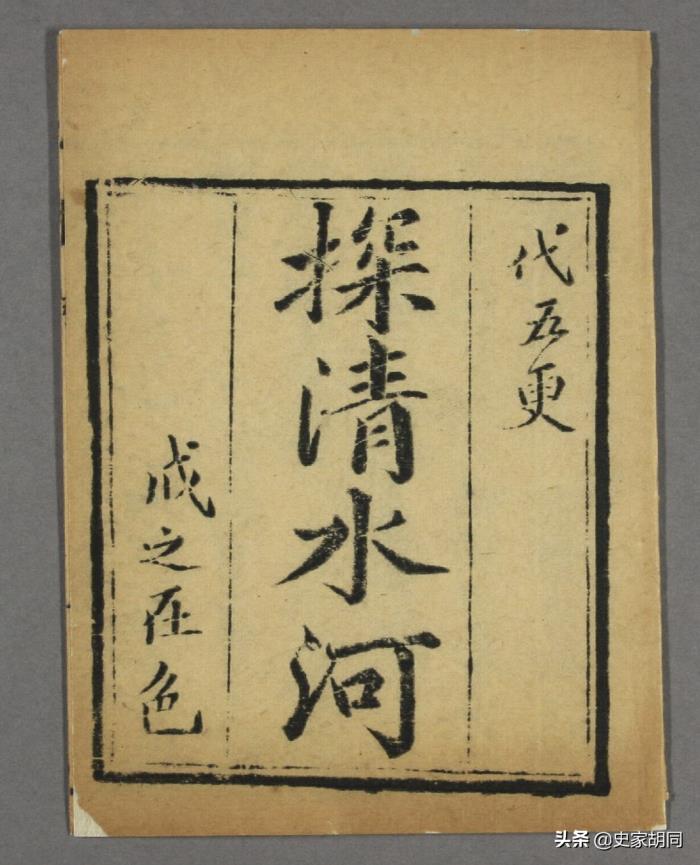 代五更
探清水河
戒之在色
头条 @史家胡同